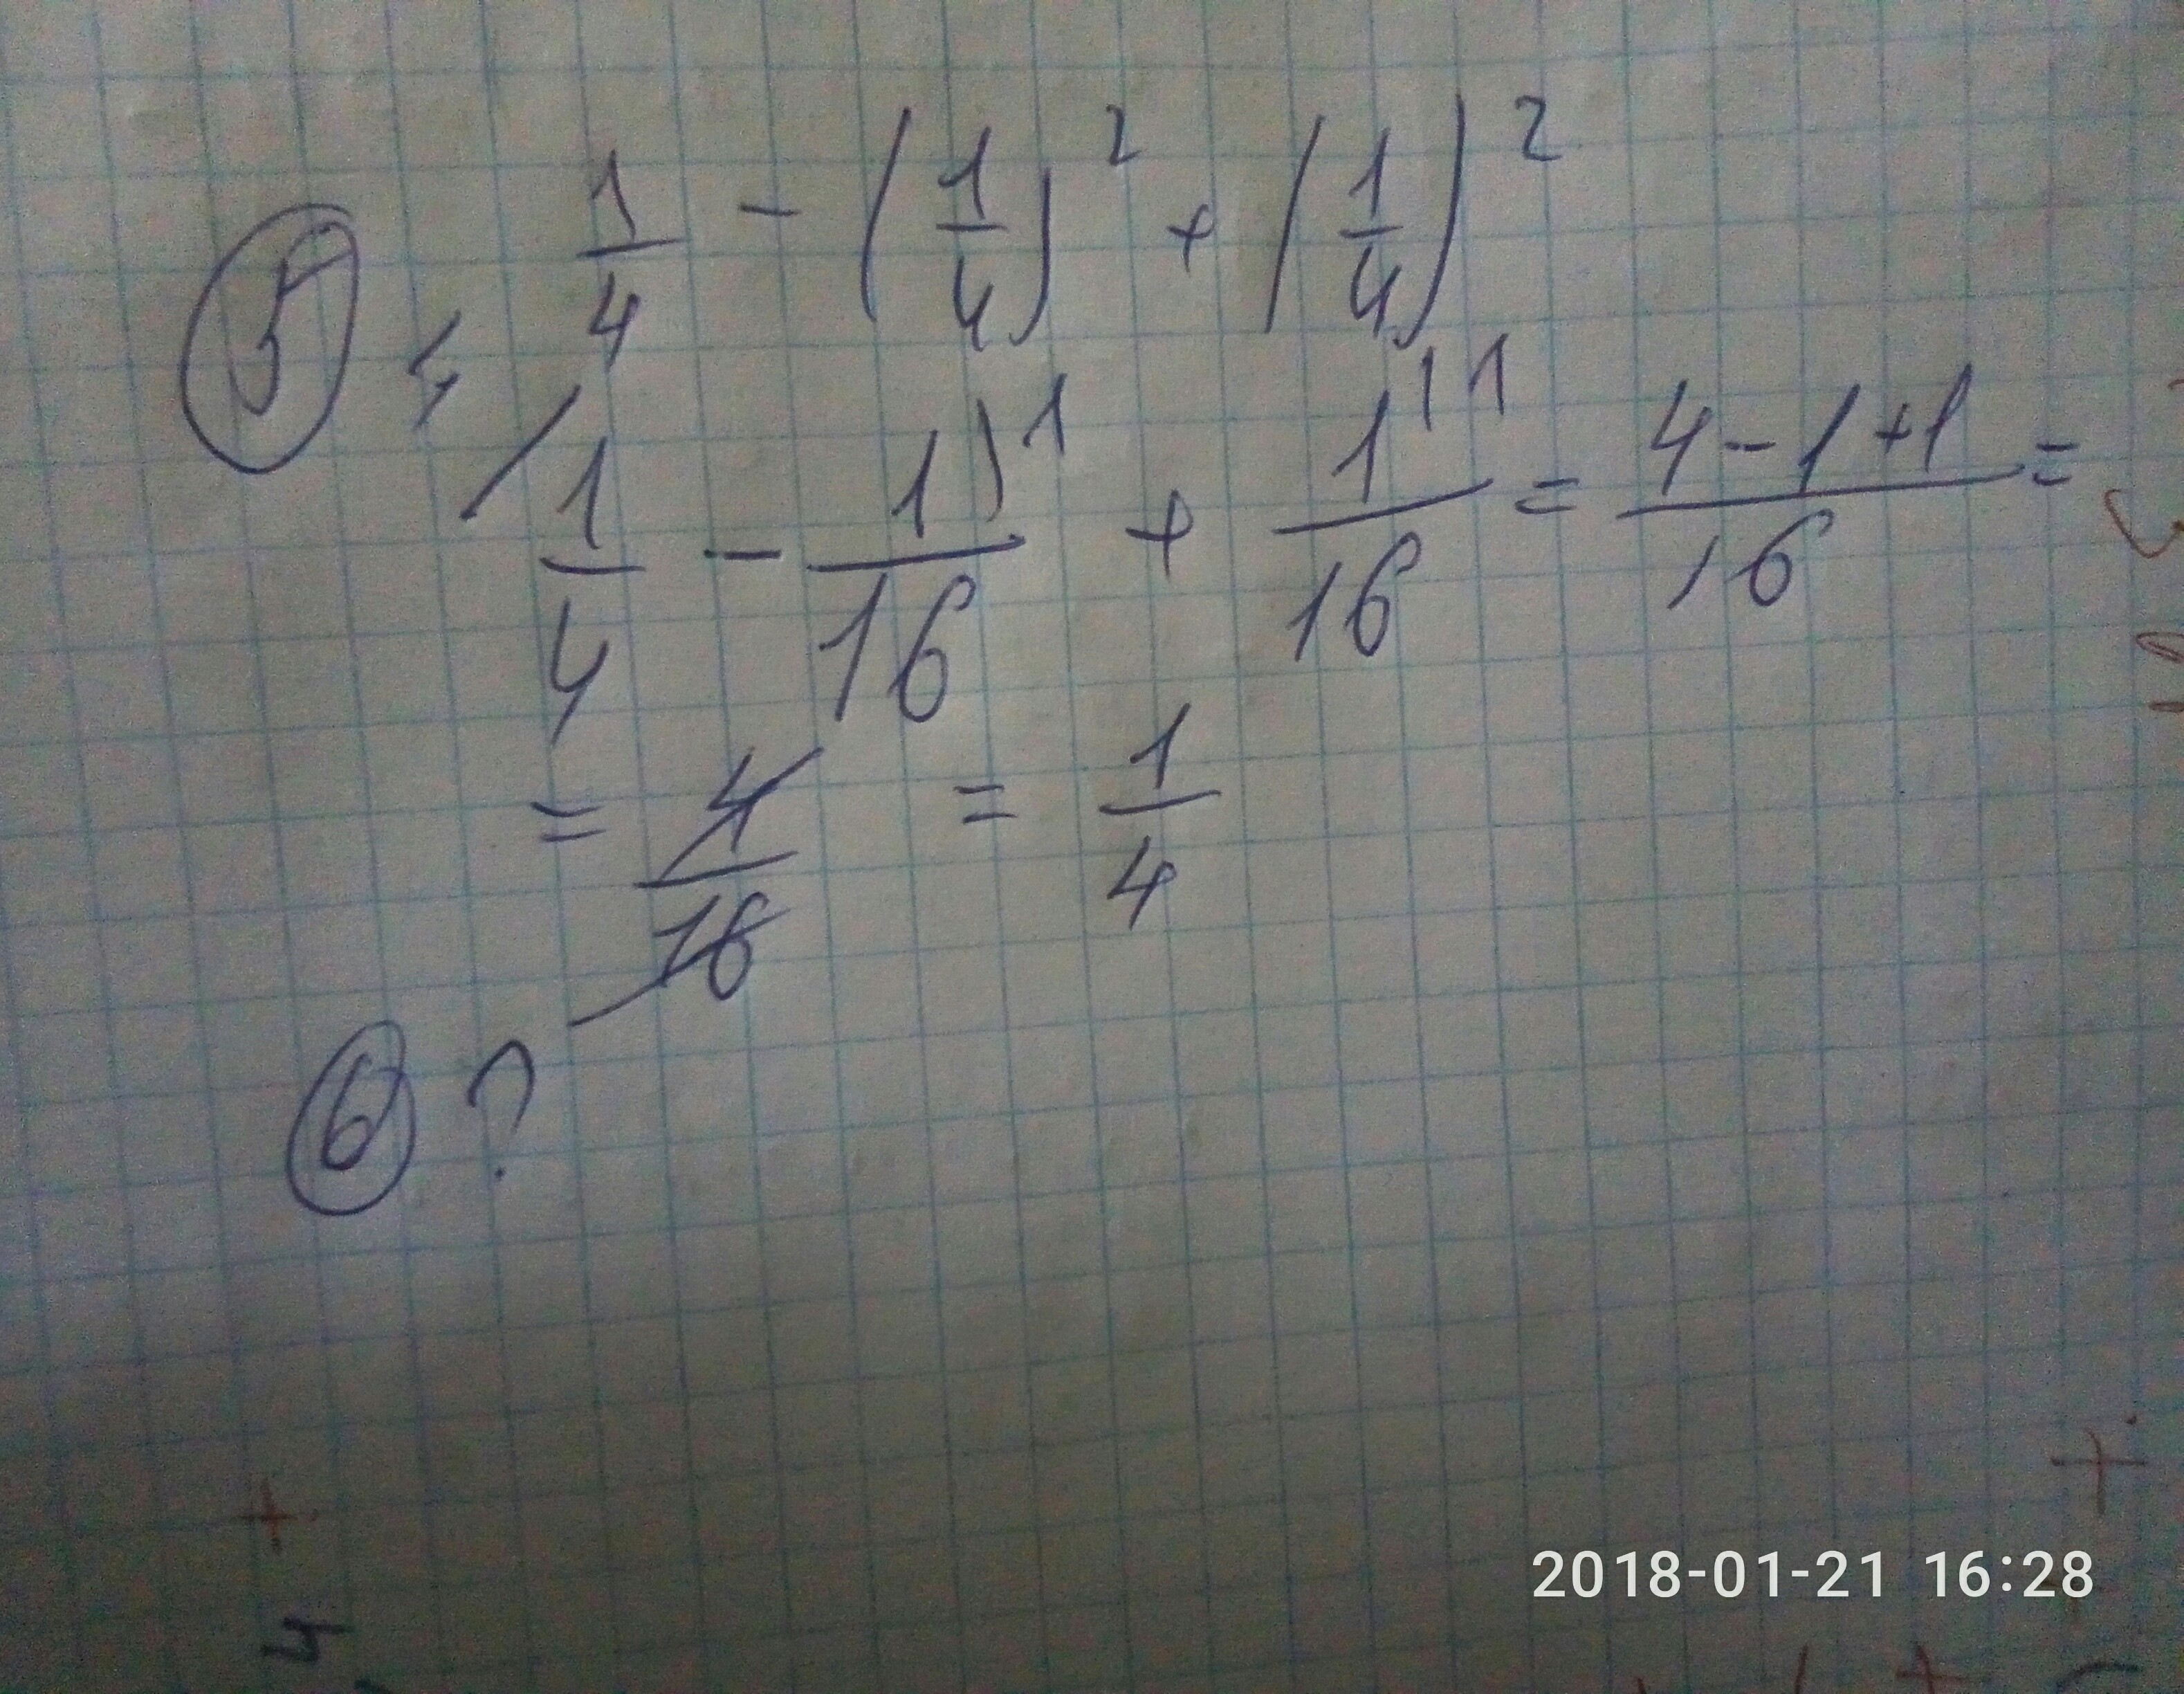 ⑤ 1/4 - (1/4)² + (1/4)²
4/ 1/4 - 1/16 \1 + 1/16 \1 = (4-1+1)/16 =
= 4/16 = 1/4
⑥ ?
2018-01-21 16:28